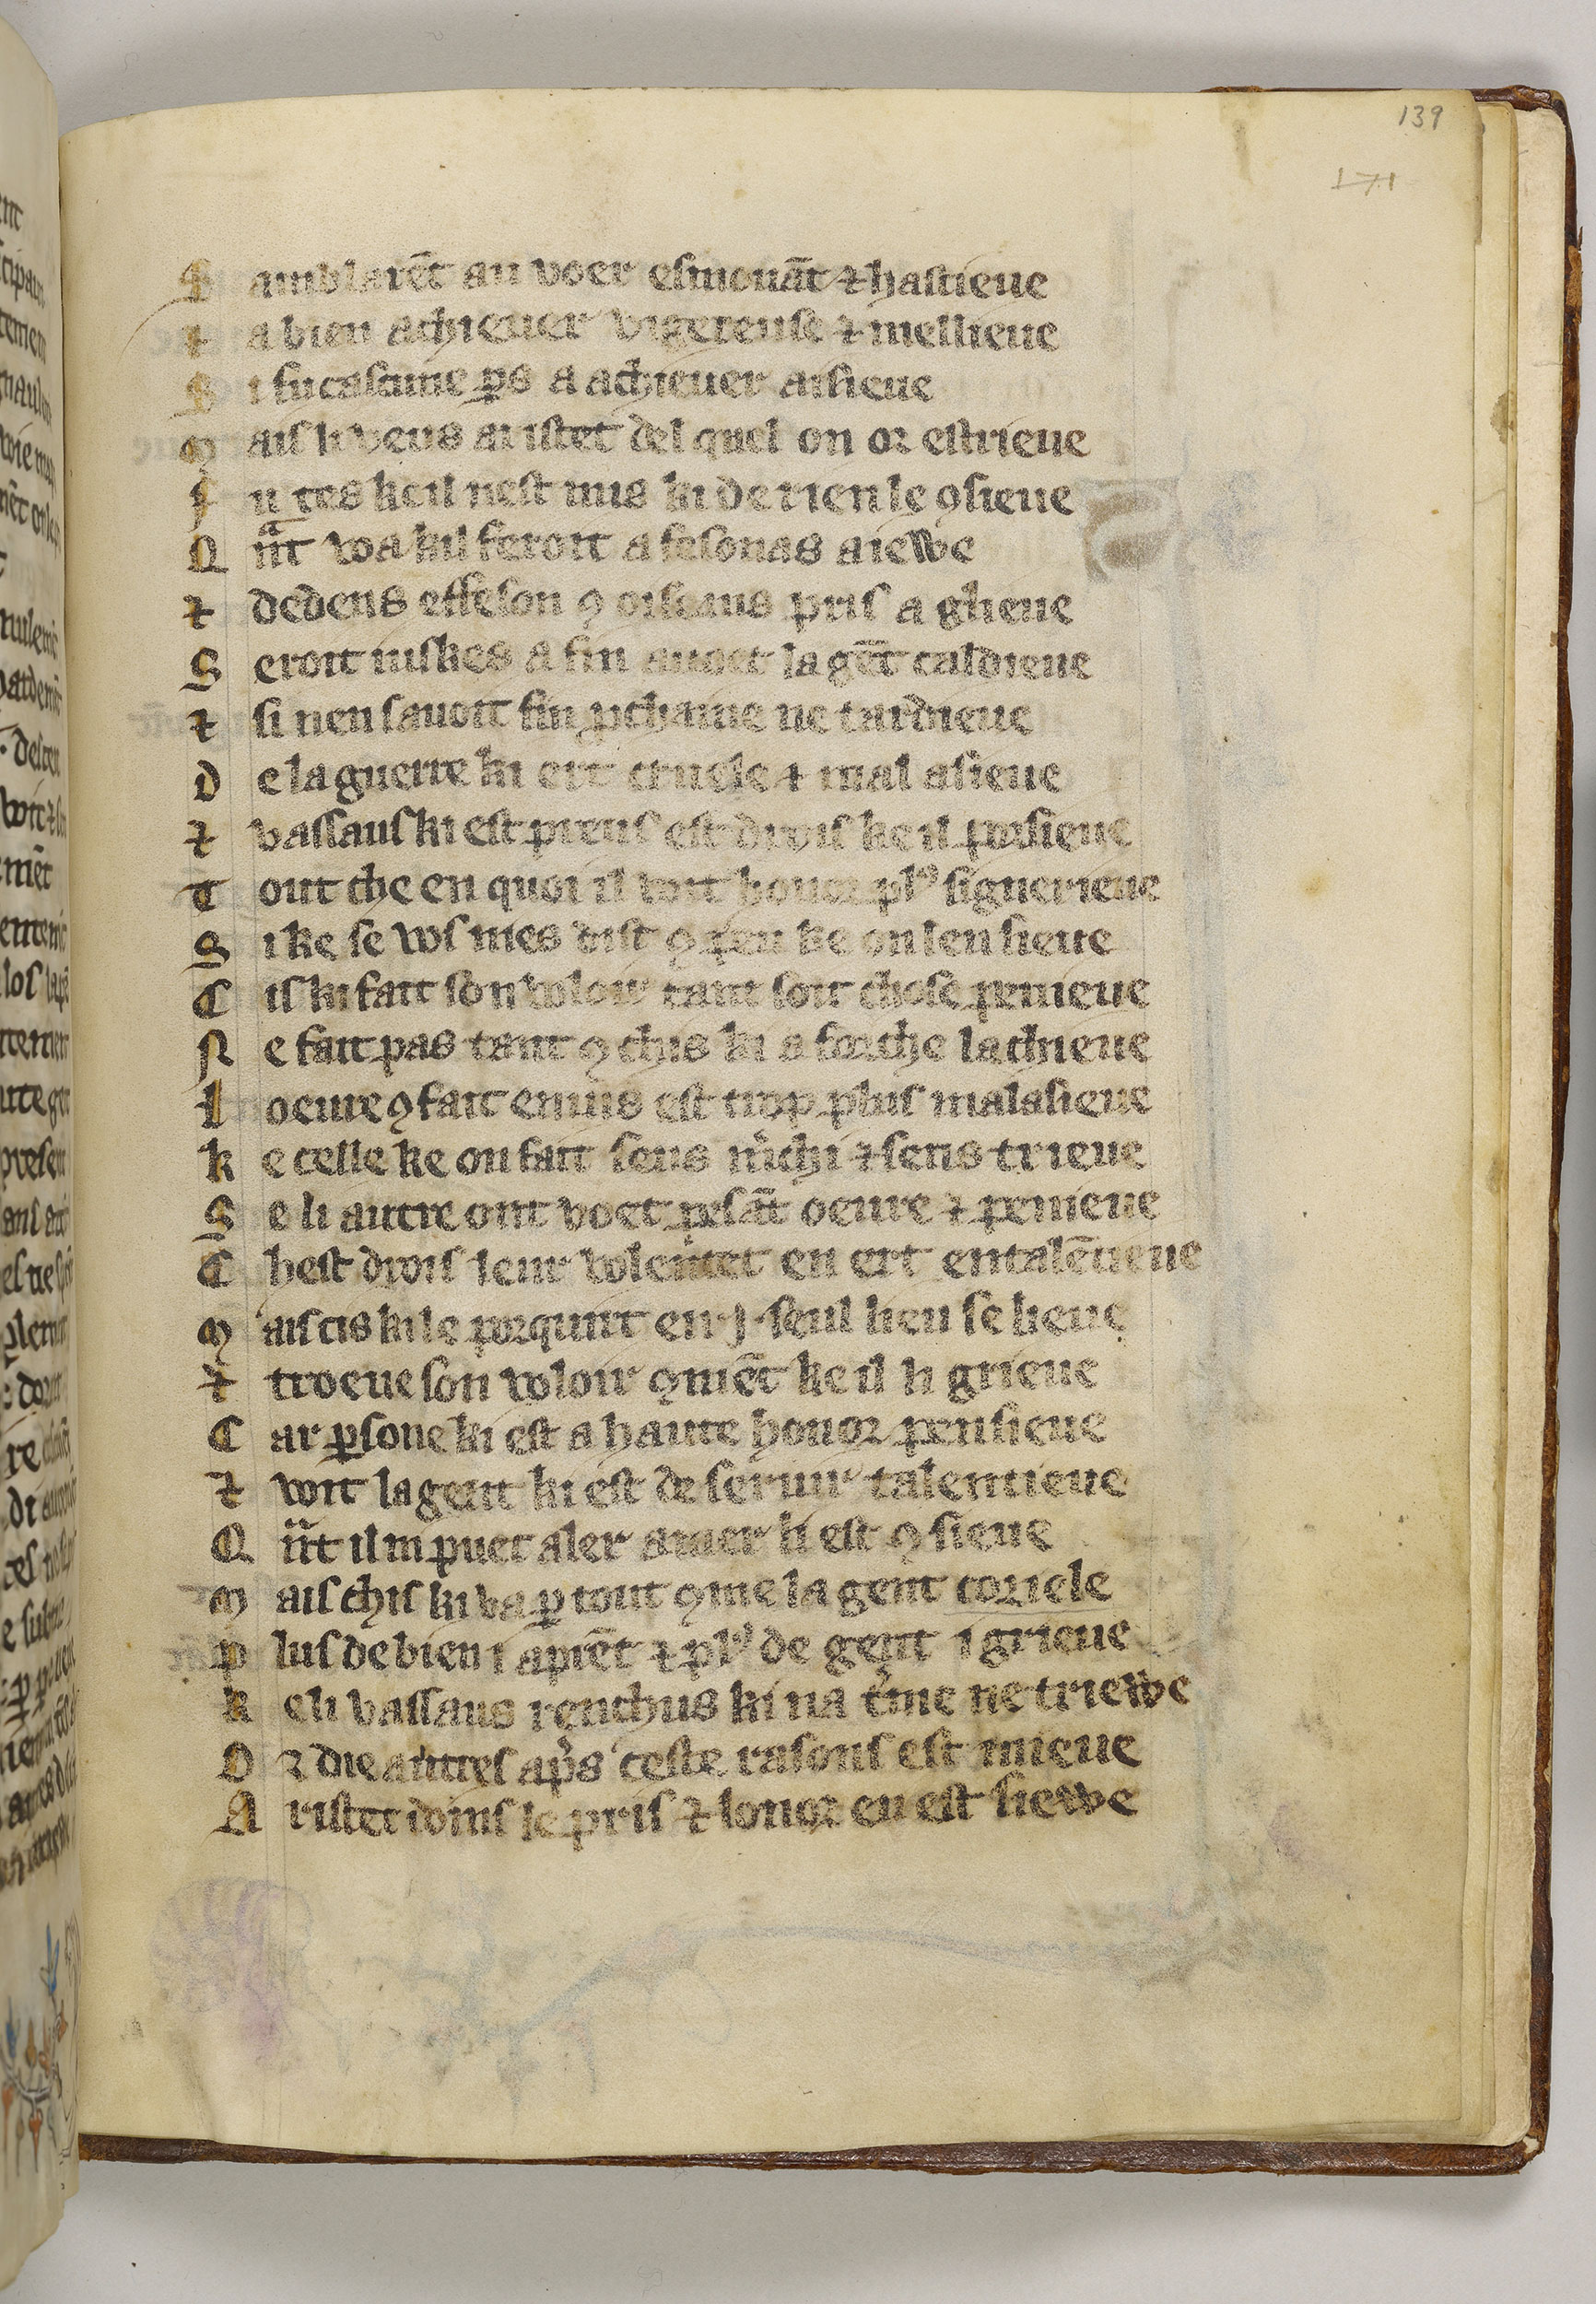 139
171
S amblarēt au voer esmouāt ⁊ hastieue
⁊ a bien achieuer vigereuse ⁊ mellieue
S i fu cascune ꝑs a achieuer aisieue
M ais li veus aristet del quel on or estrieue
f u tes ke il nest nus ki de rien le ꝯsieue
Q ᷓnt voa kil feroit a fesonas aiewe
⁊ dedens effeson ꝯ oiseaus pris a glieue
S eroit iuskes a fin auoet la gēt caldieue
⁊ si nen sauoit fin ꝓchaine ne tardieue
D e la guerre ki ert cruele ⁊ mal asieue
⁊ vassaus ki est preus est drois ke il porsieue
T out che en quoi il voit honor plꝰ signerieue
S i ke se vos mes dist ꝯ peu ke on len lieue
C il ki fait son voloir tant soit chose penieue
N e fait pas tant ꝯ chis ki a forche lachieue
L oeure ꝯ fait enuis est trop plus malasieue
k e celle ke on fait sens m̓chi ⁊ sens trieue
S e li autre ont voet pesāt oeure ⁊ penieue
C hest drois leur volentet en ert entalētieue
M ais cis ki le porquirt en .j. seul lieu se lieue
⁊ troeue son voloir ꝯmēt ke il li grieue
C ar ꝑsone ki est a haute honor pensieue
⁊ voit la gent ki est de seruir talentieue
Q ᷓnt il ni puet aler auuer li est ꝯsieue
M ais chis ki va ꝑ tout ꝯme la gent coriele
P lus de bien i aprēt ⁊ plꝰ de gent i grieue
K e li vassaus renchus ki na t̓me ne triewe
O r die autres ap̓s ceste raisons est mieue
A ristet idonis le pris ⁊ lonor en est liewe